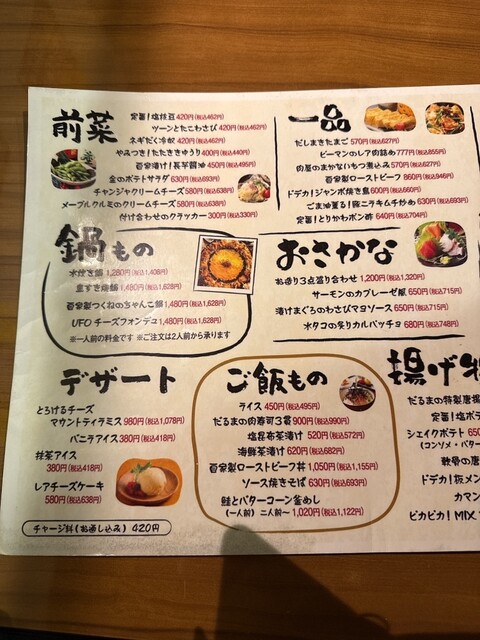 前菜
定番！塩枝豆 420円(税込462円)
ツーンとたこわさび 420円(税込462円)
ネギだく冷奴 420円(税込462円)
やみつき！たたききゅうり 400円(税込440円)
自家漬け！長芋醤油 450円(税込495円)
金のポテトサラダ 630円(税込693円)
チャンジャクリームチーズ 580円(税込638円)
メープルクルミのクリームチーズ 580円(税込638円)
付け合わせのクラッカー 300円(税込330円)
一品
だしまきたまご 570円(税込627円)
ピーマンのレア肉詰め 777円(税込855円)
肉屋のまかないもつ煮込み 570円(税込627円)
自家製ローストビーフ 860円(税込946円)
ドデカ！ジャンボ焼き鳥 600円(税込660円)
ごま油薫る！豚ニラキムチ炒め 630円(税込693円)
定番！とりかわポン酢 640円(税込704円)
鍋もの
水炊き鍋 1,280円(税込1,408円)
黒すき焼鍋 1,480円(税込1,628円)
自家製つくねのちゃんこ鍋 1,480円(税込1,628円)
UFO チーズフォンデュ 1,480円(税込1,628円)
※一人前の料金です ※ご注文は2人前から承ります
おさかな
お造り3点盛り合わせ 1,200円(税込1,320円)
サーモンのカプレーゼ風 650円(税込715円)
漬けまぐろのわさびマヨソース 650円(税込715円)
水タコの炙りカルパッチョ 680円(税込748円)
デザート
とろけるチーズ
マウントティラミス 980円(税込1,078円)
バニラアイス 380円(税込418円)
抹茶アイス
380円(税込418円)
レアチーズケーキ
580円(税込638円)
チャージ料(お通し込み) 420円
ご飯もの
ライス 450円(税込495円)
だるまの肉寿司3貫 900円(税込990円)
塩昆布茶漬け 520円(税込572円)
海鮮茶漬け 620円(税込682円)
自家製ローストビーフ丼 1,050円(税込1,155円)
ソース焼きそば 630円(税込693円)
鮭とバターコーン釜めし
(一人前) 二人前〜 1,020円(税込1,122円)
揚げ
だるまの特製唐揚
定番！塩ポテ
シェイクポテト 650
(コンソメ・バター
軟骨の唐
ドデカ！
カマン
ピカピカ！MIX